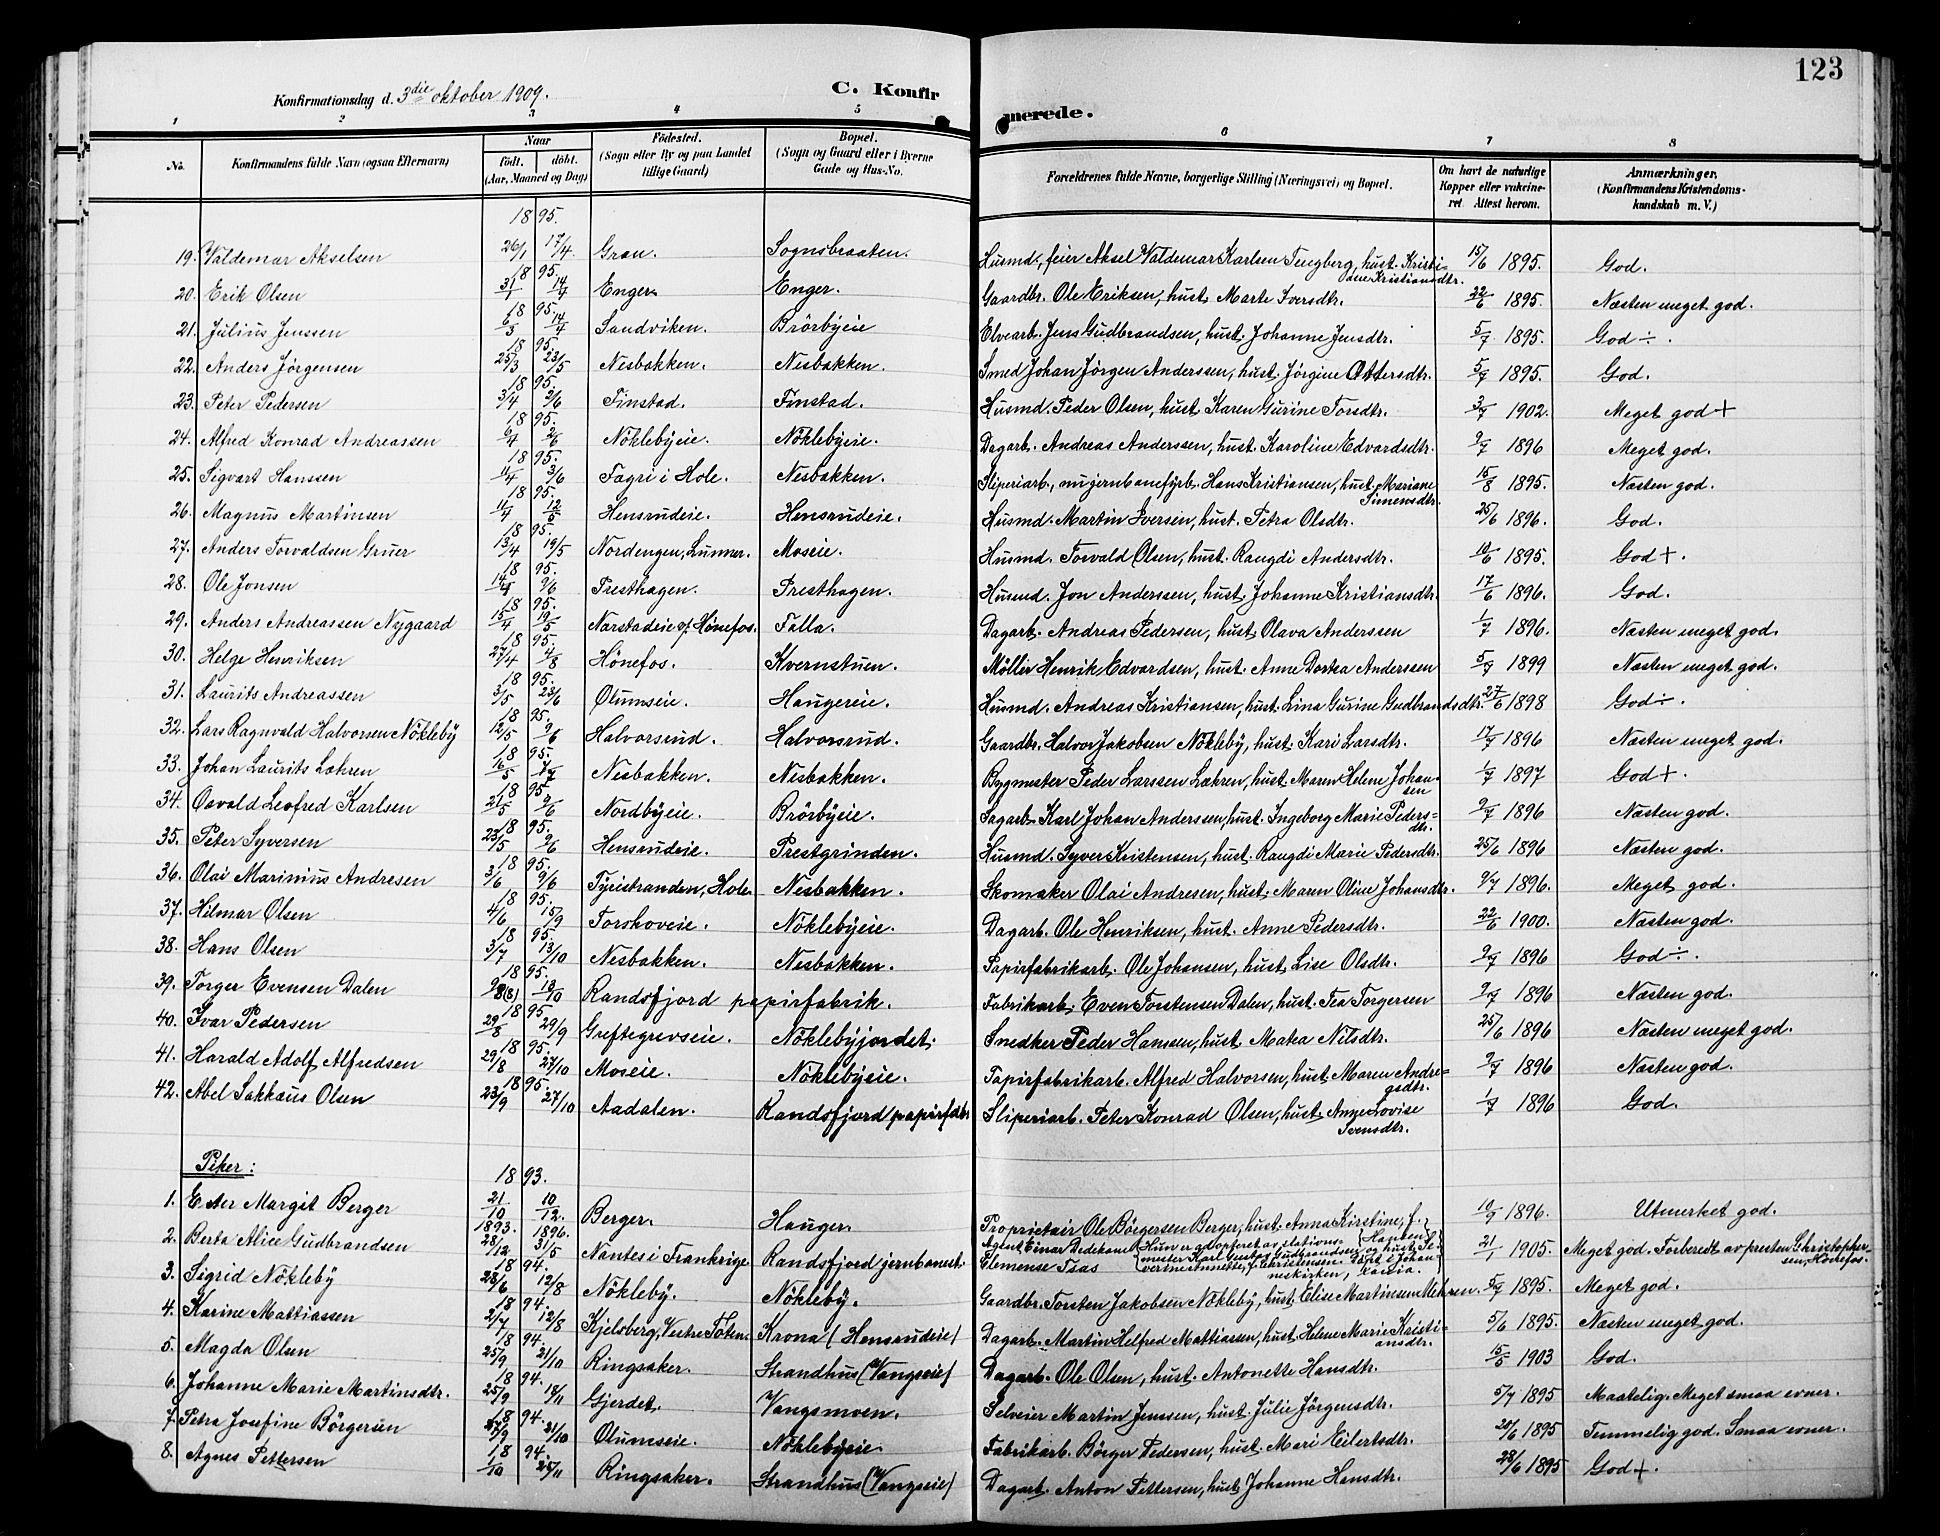 123
Konfirmationsdag d. 3die oktober 1909. C. Konfir merede.
1 2 3 4 5 6 7 8
No. Konfirmandens fulde Navn (ogsaa Efternavn) Naar födt. döbt. (Aar, Maaned og Dag) Födested. (Sogn eller By og paa Landet tillige Gaard) Bopæl. (Sogn og Gaard eller i Byerne Gade og Hus-No. Forældrenes fulde Navne, borgerlige Stilling (Næringsvei) og Bopæl. Om havt de naturlige Kopper eller vakcineret Attest herom. Anmærkninger. (Konfirmandens Kristendomskundskab m. V.)
1895.
19. Valdemar Akselsen 26/1 17/4 Gran. Sognsbraaten. Husmd., feier Aksel Valdemar Karlsen Tengberg, hust. Kristiane Kristiansdtr. 15/6 1895. God.
1895.
20. Erik Olsen 31/1 14/4 Enger. Enger. Gaardbr. Ole Eriksen, hust. Marte Iversdtr. 22/6 1895. Næsten meget god.
1895.
21. Julius Jenssen 6/3 14/4 Sandviken. Brörbyeie Elvearb. Jens Gudbrandsen, hust. Johanne Jensdtr. 5/7 1895. God ÷.
1895.
22. Anders Jörgensen 25/3 23/5 Nesbakken. Nesbakken. Smed Johan Jörgen Anderssen, hust. Jörgine Ottersdtr. 5/7 1895. God.
1895.
23. Peter Pedersen 3/4 3/6 Finstad. Finstad. Husmd. Peder Olsen, hust. Karen Gurine Torsdtr. 3/7 1902. Meget god +
1895.
24. Alfred Konrad Andreassen 9/4 2/6 Nöklebyeie. Nöklebyeie. Dagarb. Andreas Anderssen, hust. Karoline Edvardsdtr. 9/7 1896 Meget god.
1895.
25. Sigvart Hanssen 11/4 3/6 Fagri i Hole. Nesbakken. Sliperiarb., nu jernbanefyrb. Hans Kristiansen, hust. Mariane Simensdtr. 15/8 1895. Næsten god.
1895.
26. Magnus Martinsen 11/4 12/5 Hensrudeie. Hensrudeie. Husmd. Martin Iversen, hust. Petra Olsdtr. 25/6 1896. God.
1895.
27. Anders Torvaldsen Gruer 13/4 19/5 Nordengen, Lunner. Moseie. Husmd. Torvald Olsen, hust. Rangdi Andersdtr. 10/6 1895. God +.
1895.
28. Ole Jonsen 14/4 9/6 Presthagen. Presthagen. Husmd. Jon Anderssen, hust. Johanne Kristiansdtr. 17/6 1896. God.
1895.
29. Anders Andreassen Nygaard 15/4 19/5 Norstadeie v/ Hönefos. Falla. Dagarb. Andreas Pedersen, hust. Olava Anderssen 1/7 1896. Næsten meget god.
1895.
30. Helge Henriksen 27/4 4/8 Hönefos. Kvernstuen. Möller Henrik Edvardsen, hust. Anne Dortea Anderssen 5/7 1899 Næsten meget god.
1895.
31. Laurits Andreassen 3/5 23/6 Olumseie. Haugereie. Husmd. Andreas Kristiansen, hust. Lina Gurine Gudbrandsdtr. 27/6 1898 God ÷.
1895.
32. Lars Ragnvald Halvorsen Nökleby 12/5 9/6 Halvorsrud. Halvorsrud. Gaardbr. Halvor Jakobsen Nökleby, hust. Kari Larsdtr. 17/7 1896 Næsten meget god.
1895.
33. Johan Laurits Læhren 16/5 7/7 Nesbakken. Nesbakken. Bygmester Peder Larssen Læhren, hust. Maren Helene Johansen 1/7 1897 God +.
1895.
34. Osvald Leofred Karlsen 21/5 2/6 Nordbyeie. Brörbyeie. Sagarb. Karl Johan Anderssen, hust. Ingeborg Marie Pedersdtr. 9/7 1896 Næsten god.
1895.
35. Peter Syversen 23/5 2/6 Hensrudeie. Prestgrinden. Husmd. Syver Kristensen, hust. Rangdi Marie Pedersdtr. 25/6 1896 Næsten god.
1895.
36. Olai Marinius Andresen 3/6 9/6 Tyristranden, Hole Nesbakken. Skomaker Olai Andresen, hust. Maren Oline Johansdtr. 9/7 1896. Meget god.
1895.
37. Hilmar Olsen 4/6 15/9 Torshoveie. Nöklebyeie. Dagarb. Ole Henriksen, hust. Anne Pedersdtr. 22/6 1900. Næsten god.
1895.
38. Hans Olsen 3/7 13/10 Nesbakken. Nesbakken. Papirfabrikarb. Ole Johansen, hust. Lise Olsdtr. 9/7 1896 God ÷.
1895.
39. Torger Evensen Dalen 9/8(8) 13/10 Randsfjord papirfabrik. Fabrikarb. Even Torstensen Dalen, hust. Tea Torgersen 9/7 1896 Næsten god.
1895.
40. Ivar Pedersen 29/8 29/9 Greftegrevseie. Nöklebyjordet. Snedker Peder Hansen, hust. Matea Nilsdtr. 25/6 1896 Næsten meget god.
1895.
41. Harald Adolf Alfredsen 29/8 27/10 Moseie. Nöklebyeie. Papirfabrikarb. Alfred Halvorsen, hust. Maren Andreasdtr. 9/7 1896 Næsten god.
1895.
42. Abel Sakkæus Olsen 23/9 27/10 Aadalen. Randsfjord papirfabr. Sliperiarb. Peter Konrad Olsen, hust. Anne Lovise Svensdtr. 1/7 1896 God.
Piker:
1893.
1. Ester Margit Berger 21/10 10/12. Berger. Hauger. Proprietair Ole Börgersen Berger, hust. Anna Kirstine, f. Hansen. 10/9 1896. Utmerket god.
1893. 1896.
2. Berta Alice Gudbrandsen 28/12 31/5 Nantes i Frankrige Randsfjord jernbanest. Agent Einar Dedekam Clemense Tsas {Hun er adopteret av stationsmester Karl Gustav Gudbrandsen og hust. f. Christensen. Döpt i Johanneskirken, 21/1 1905. Meget god. Forberedt av presten Christophersen, Hönefos.
1894.
3. Sigrid Nökleby 28/6 12/8 Nökleby. Nökleby. Gaardbr. Torsten Jakobsen Nökleby, hust. Elise Martinsen Mehren. 5/7 1895. Meget god.
1894.
4. Karine Mattiassen 2/7 12/8 Kjelsberg, Vestre Toten. Krona (Hensrudeie) Dagarb. Martin Helfred Mattiassen, hust. Helene Marie Kristiansdtr. 5/6 1895. Næsten meget god.
1894.
5. Magda Olsen 25/9 21/10 Ringsaker. Strandhus (Vangseie) Dagarb. Ole Olsen, hust. Antonette Hansdtr. 15/5 1903 God.
1894.
6. Johanne Marie Martinsdtr. 25/9 18/11 Gjerdet. Vangsmoen. Selveier Martin Jenssen, hust. Julie Jörgensdtr. 5/7 1895 Maatelig. Meget smaa evner.
1894.
7. Petra Josefine Börgersen 27/9 21/10 Olumseie. Nöklebyeie Fabrikarb. Börger Pedersen, hust. Mari Eilertsdtr. 28/6 1895 Temmelig god. Smaa evner.
1894.
8. Agnes Pettersen 1/10 25/11 Ringsaker. Strandhus (Vangseie) Dagarb. Anton Pettersen, hust. Johanne Hansdtr. 28/6 1895 God +.